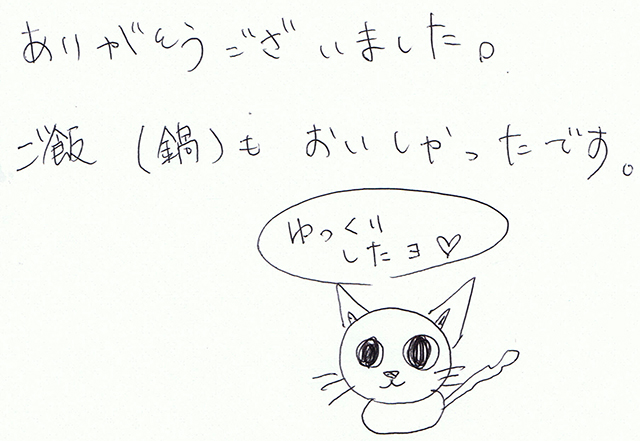 ありがとうございました。
ご飯(鍋)も おいしかったです。
ゆっくり
したヨ♡